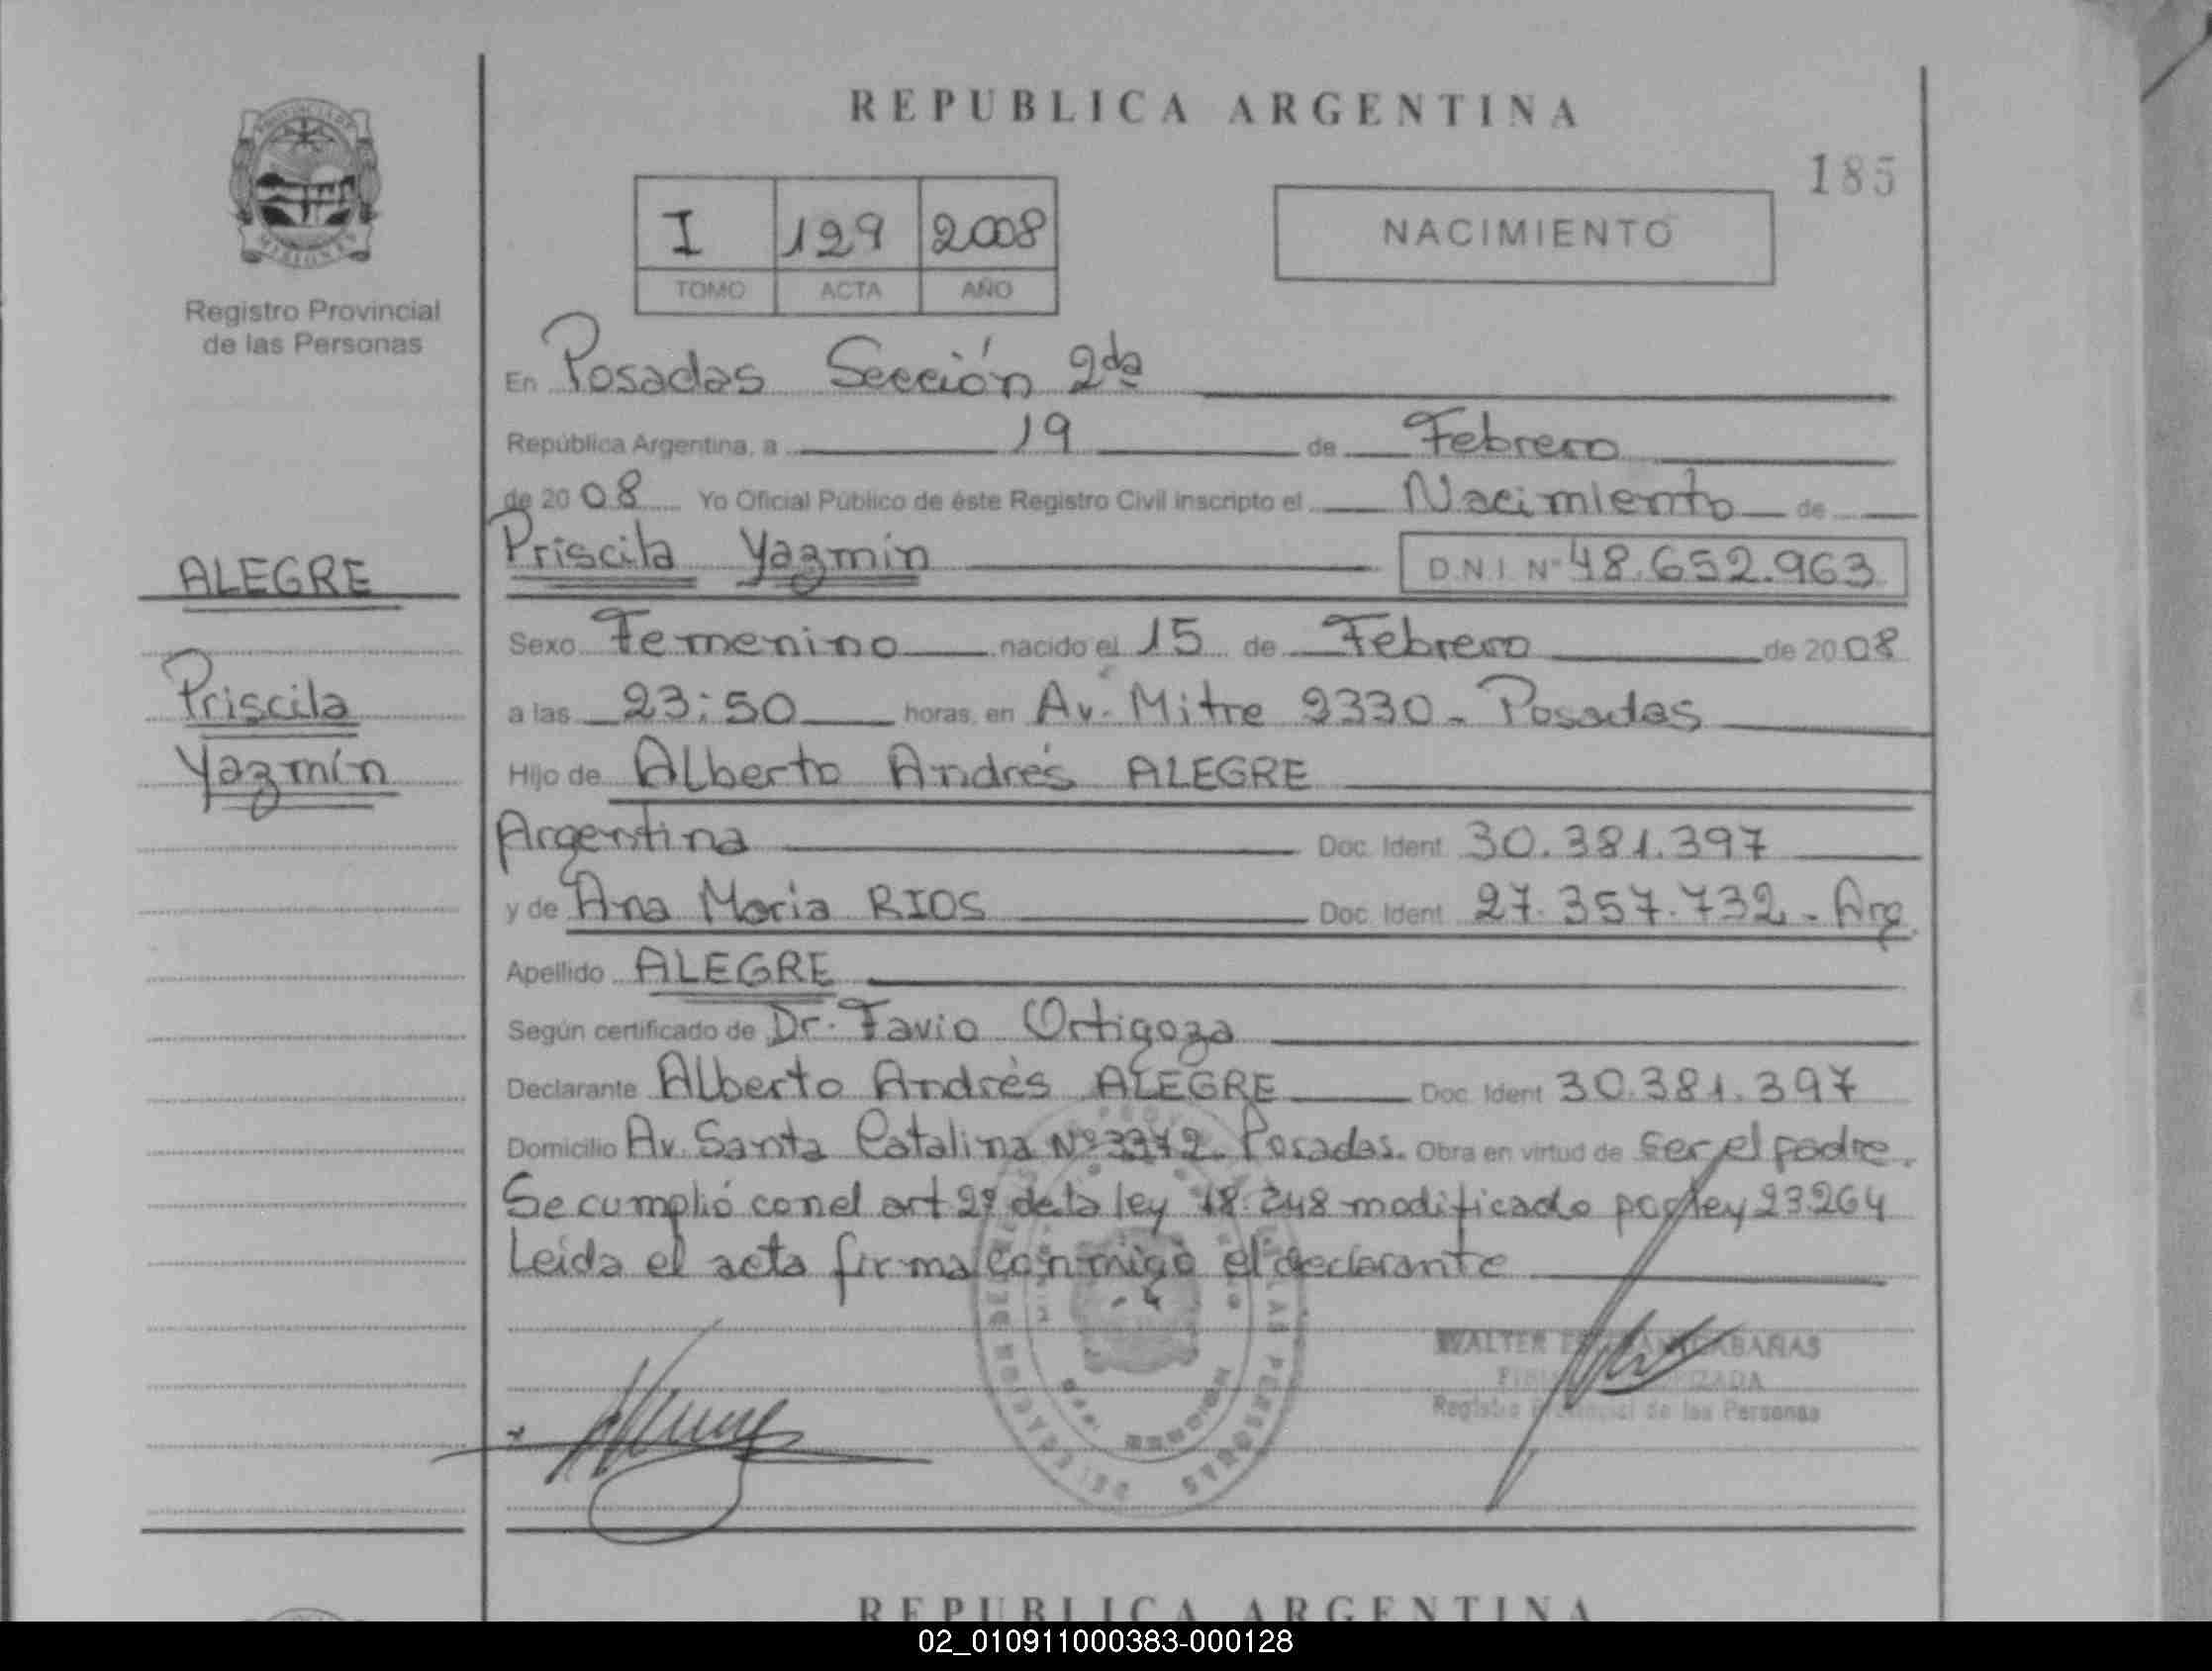 REPUBLICA ARGENTINA
185
I 129 2008
TOMO ACTA AÑO
NACIMIENTO
PROVINCIA DE
MISIONES
Registro Provincial
de las Personas
ALEGRE
Priscila
Yazmín
En Posadas Sección 2da
República Argentina, a 19 de Febrero
de 2008 Yo Oficial Público de éste Registro Civil inscripto el Nacimiento de
Priscila Yazmín D N I Nº 48.652.963
Sexo Femenino nacido el 15 de Febrero de 2008
a las 23:50 horas, en Av. Mitre 2330 - Posadas
Hijo de Alberto Andrés ALEGRE
Argentina Doc. Ident 30.381.397
y de Ana Maria RIOS Doc. Ident 27.357.732 - Arg
Apellido ALEGRE
Según certificado de Dr. Favio Ortigoza
Declarante Alberto Andrés ALEGRE Doc. Ident 30.381.397
Domicilio Av. Santa Catalina Nº Posadas. Obra en virtud de ser el padre.
Se cumplió con el art 2º de la ley 18.248 modificado por ley 23264
Leida el acta firma conmigo el declarante
WALTER
Registro Provincial de las Personas
REPUBLICA ARGENTINA
02_010911000383-000128